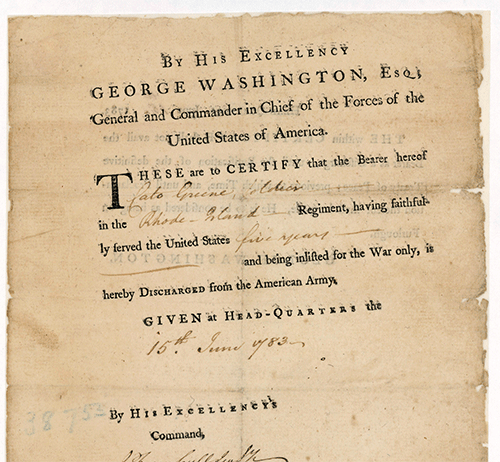 By His Excellency
GEORGE WASHINGTON, Esq;
General and Commander in Chief of the Forces of the
United States of America.
THESE are to CERTIFY that the Bearer hereof
Cato Greene Soldier
in the Rhode-Island Regiment, having faithful-
ly ſerved the United States five years
and being inliſted for the War only, is
hereby Discharged from the American Army.
GIVEN at Head-Quarters the
15th. June 1783
38752
By His Excellency's
Command,